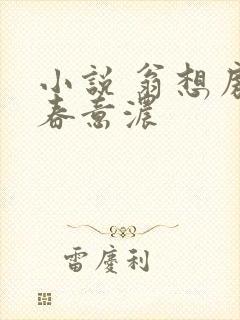 小說 翁想房
春意濃
雷慶利